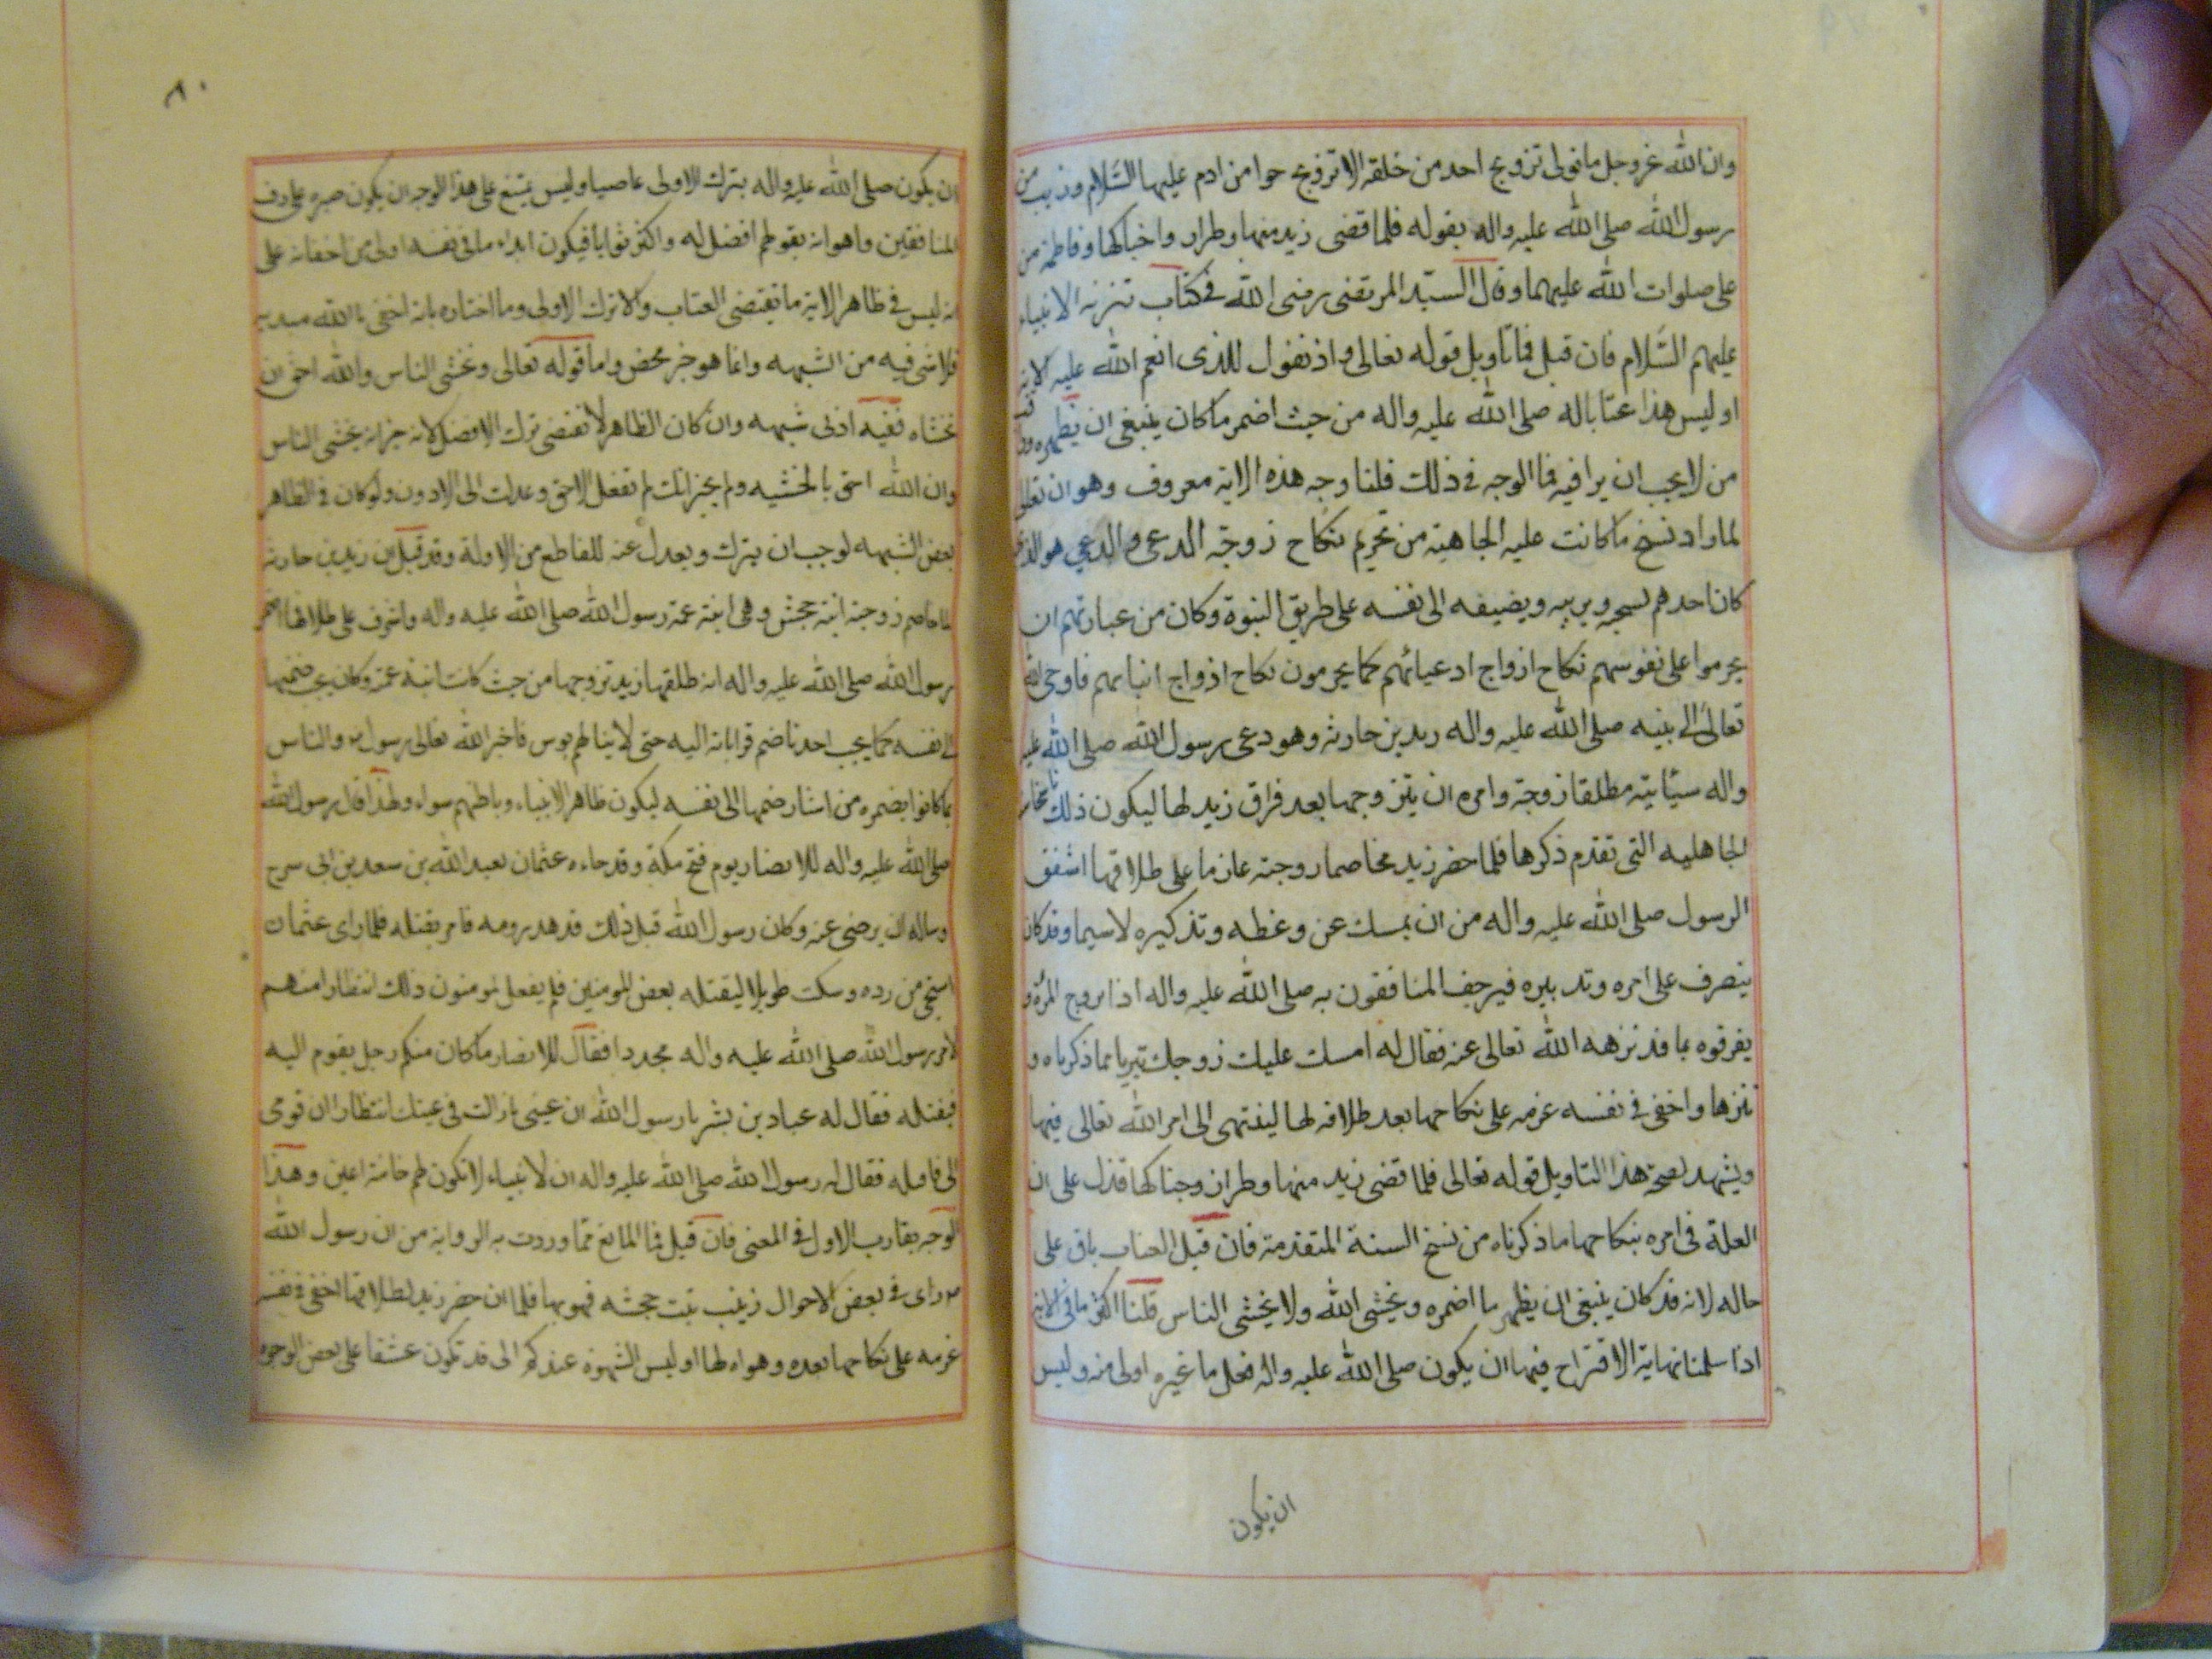 وان الله عز وجل ما تولى تزويج احد من خلقه الا تزويج حوا من ادم عليهما السلام وزينب من
رسول الله صلى الله عليه واله بقوله فلما قضى زيد منها وطرا وفاطمة من
على صلوات الله عليهما وقال السيد المرتضى رضى الله في كتاب تنزيه الانبياء
عليهم السلام فان قيل فما تاويل قوله تعالى واذ تقول للذى انعم الله عليه الاية
او ليس هذا عتابا له صلى الله عليه واله من حيث اضمر ما كان ينبغى ان يظهره وراقب
من لا يجب ان يراقبه فما الوجه في ذلك قلنا وجه هذه الاية معروف وهو ان الله تعالى
لما اراد نسخ ما كانت عليه الجاهلية من تحريم نكاح زوجة الدعى والدعي هو الذى
كان احدهم يستحبه ويربيه ويضيفه الى نفسه على طريق البنوة وكان من عبارتهم ان
يحرموا على نفوسهم نكاح ازواج ادعيائهم كما يحرمون نكاح ازواج ابنائهم فاوحى الله
تعالى الى نبيه صلى الله عليه واله زيد بن حارثه وهو دعى رسول الله صلى الله عليه
واله سياتيه مطلقا زوجته وامره ان يتزوجها بعد فراق زيد لها ليكون ذلك
الجاهليه التى تقدم ذكرها فلما حضر زيد مخاصما زوجته عازما على طلاقها اشفق
الرسول صلى الله عليه واله من ان يمسك عن وعظه وتذكيره لا سيما وقد كان
يتصرف على امره وتدبيره فيرجف المنافقون به صلى الله عليه واله اذا تزوج المرأة و
يقرفوه بما قد نزهه الله تعالى عنه فقال له امسك عليك زوجك تبريا مما ذكرناه و
تنزها واخفى في نفسه عزمه على نكاحها بعد طلاقه لها لينتهى الى امر الله تعالى فيها
ويشهد لصحة هذا التاويل قوله تعالى فلما قضى زيد منها وطرا زوجناكها فدل على ان
العلة فى امره بنكاحها ما ذكرناه من نسخ السنة المتقدمة فان قيل العتاب باق على
حاله لانه قد كان ينبغى ان يظهر ما اضمره ويخشى الله ولا يخشى الناس قلنا اكثر ما فى الاية
اذا سلمنا نهاية الاقتراح فيها ان يكون صلى الله عليه واله فعل ما غيره اولى منه وليس
ان يكون
٨٠
ان يكون صلى الله عليه واله بترك الاولى عاصيا وليس يمتنع على هذا الوجه ان يكون صبره على قرف
المنافقين واهوانه بقولهم افضل له واكثر ثوابا فيكون ابداء ما في نفسه اولى من اخفائه على
انه ليس في ظاهر الاية ما يقتضى العتاب ولا ترك الاولى وما اخباره بانه اخفى ما الله مبديه
فلا شى فيه من الشبهه وانما هو خبر محض واما قوله تعالى وتخشى الناس والله احق ان
تخشاه ففيه ادنى شبهه وان كان الظاهر لا تقتضى ترك الافضل لانه خبر انه يخشى الناس
وان الله احق بالخشيه ولم يخبر انك لم تفعل الاحق وعدلت الى الادون ولو كان في الظاهر
بعض الشبهه لوجب ان يترك ويعدل عنه للقاطع من الادلة وقد قيل ان زيد بن حارثة
لما خاصم زوجته ابنة جحش وهى ابنة عمة رسول الله صلى الله عليه واله واشرف على طلاقها اضمر
رسول الله صلى الله عليه واله انه ان طلقها زيد تزوجها من حيث كانت ابنة عمته وكان يحب ضمها
الى نفسه كما يحب احدنا ضم قراباته اليه حتى لا ينالهم بوس فاخبر الله تعالى رسوله والناس
بما كانوا يضمره من ايثار ضمها الى نفسه ليكون ظاهر الانبياء وباطنهم سواء ولهذا قال رسول الله
صلى الله عليه واله للانصار يوم فتح مكة وقد جاءه عثمان بعبد الله بن سعد بن ابى سرح
وساله ان يرضى عنه وكان رسول الله قبل ذلك قد هدر دمه فامر بقتله فلما راى عثمان
استحى من رده وسكت طويلا ليقتله بعض المومنين فلم يفعل المومنون ذلك انتظارا منهم
لامر رسول الله صلى الله عليه واله مجددا فقال للانصار ما كان منكم رجل يقوم اليه
فيقتله فقال له عباد بن بشر يا رسول الله ان عينى ما زالت فى عينك انتظارا ان تومى
الى فاقتله فقال له رسول الله صلى الله عليه واله ان الانبياء لا تكون لهم خائنة اعين وهذا
الوجه يقارب الاول في المعنى فان قيل فما المانع مما وردت به الرواية من ان رسول الله
راى في بعض الاحوال زينب بنت جحشه فهويها فلما ان حضر زيد لطلاقها اخفى في نفسه
عزمه على نكاحها بعده وهواه لها او ليس الشهوة عندكم التى قد تكون عشقا على بعض الوجوه